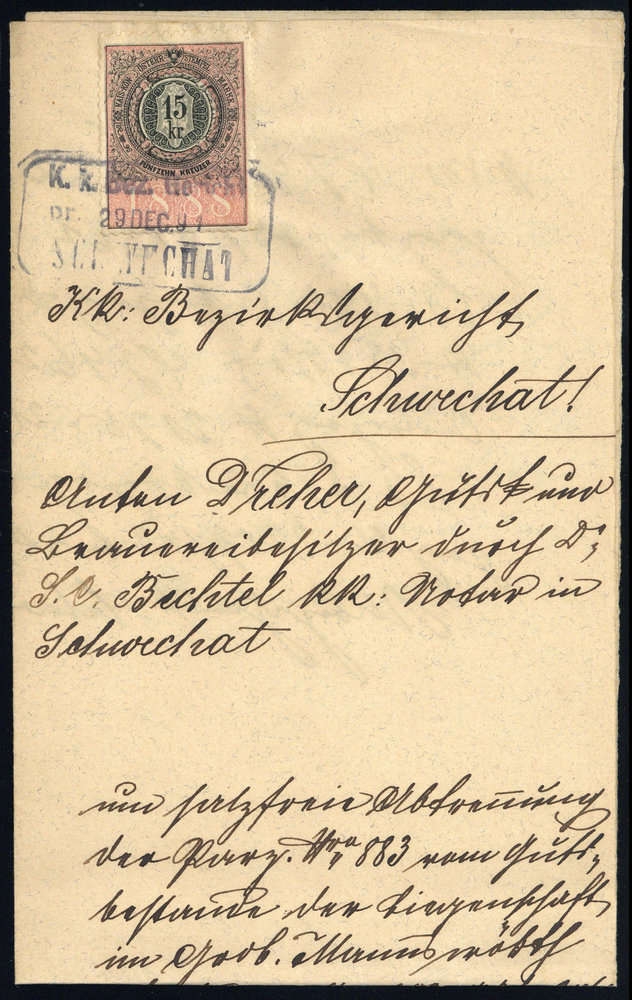 KAIS. KÖN. ÖSTERR. STEMPEL MARKE
15
kr.
FÜNFZEHN KREUZER
1888
K. k. Bez. Ger
pr. 29 DEC. 91
SCHWECHAT
Kk: Bezirksgericht
Schwechat!
Anton Dreher, Guts- und
Brauereibesitzer durch Dr.
Bechtel kk: Notar in
Schwechat
um satzfreie Abtrennung
der Parz. Nro 883 vom Guts-
bestande der Liegenschaft
im Grdb. Mannswörth